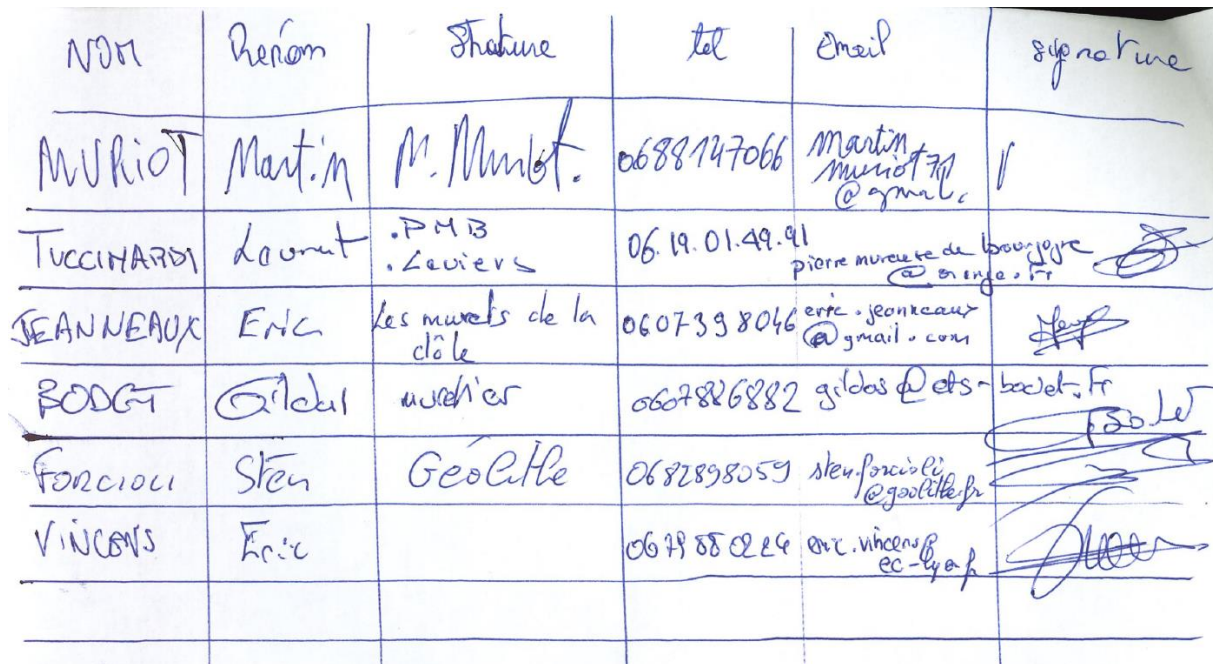 NOM Prénom Stature tel email signature
MURIOT Martin M. Muriot. 0688147066 martin
muriot71
@gmail.
TUCCINARDI Laurent .PMB 06.19.01.49.91
.Laviers pierre mureuse de bourgogne
@orange.fr
JEANNEAUX Eric Les murets de la 0607398046 eric.jeanneaux
dôle @gmail.com
BODET Gildas murailler 0607886882 gildas@ets-bodet.fr
Bodet
FORCIOLI Sten Géolithe 0682898059 sten.forcioli
@geolithe.fr
VINCENS Eric eric.vincens@
ec-lyon.fr